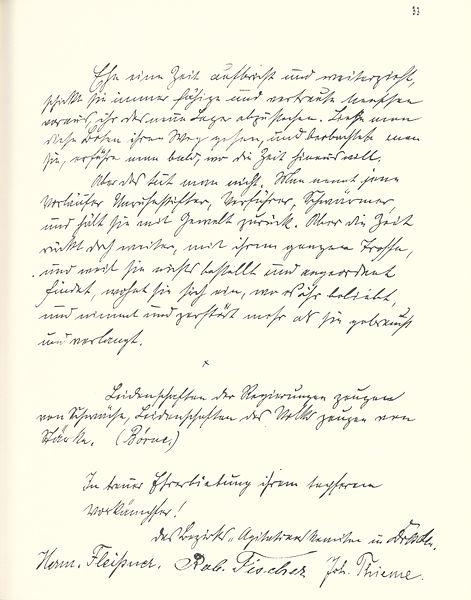 33
Ehe eine Zeit aufbricht und weiterzieht,
schickt sie immer fähige und vertraute Menschen
voraus, ihr das neue Lager abzustecken. Ließe man
diese Boten ihren Weg gehen, und beobachtete man
sie, erführe man bald, wo die Zeit hinaus will.
Aber das tut man nicht. Man nennt jene
Vorläufer Unruhestifter, Verführer, Schwärmer,
und hält sie mit Gewalt zurück. Aber die Zeit
rückt doch weiter, mit ihrem ganzen Trosse,
und weil sie nichts bestellt und angeordnet
findet, wohnt sie sich ein, wo es ihr beliebt,
und nimmt und zerstört mehr als sie gebraucht
und verlangt.
Leidenschaften der Regierungen zeugen
von Schwäche, Leidenschaften des Volks zeugen von
Stärke. (Börne.)
In treuer Ehrerbietung ihrem tapferen
Vorkämpfer!
das Bezirks-Agitations Komitee in Dresden.
Herm. Fleißner. Rob. Fischer. Joh. Thieme.